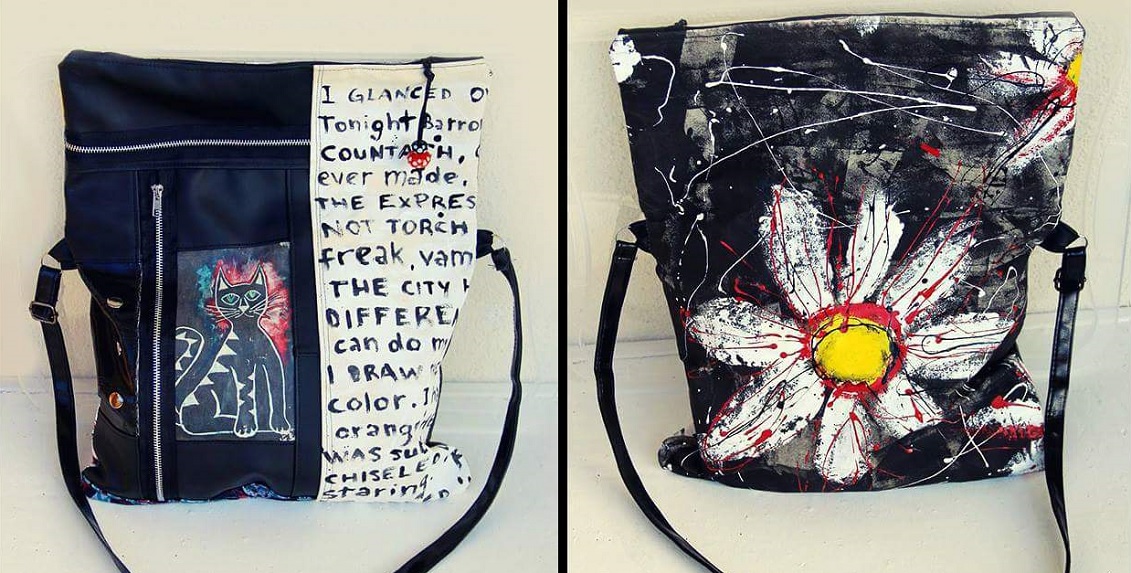 I GLANCED
Tonight Barro
COUNTACH,
ever made.
THE EXPRES
NOT TORCH
freak, vam
THE CITY
DIFFERE
can do
I DRAW
color. I
orang
WAS
CHISEL
staring